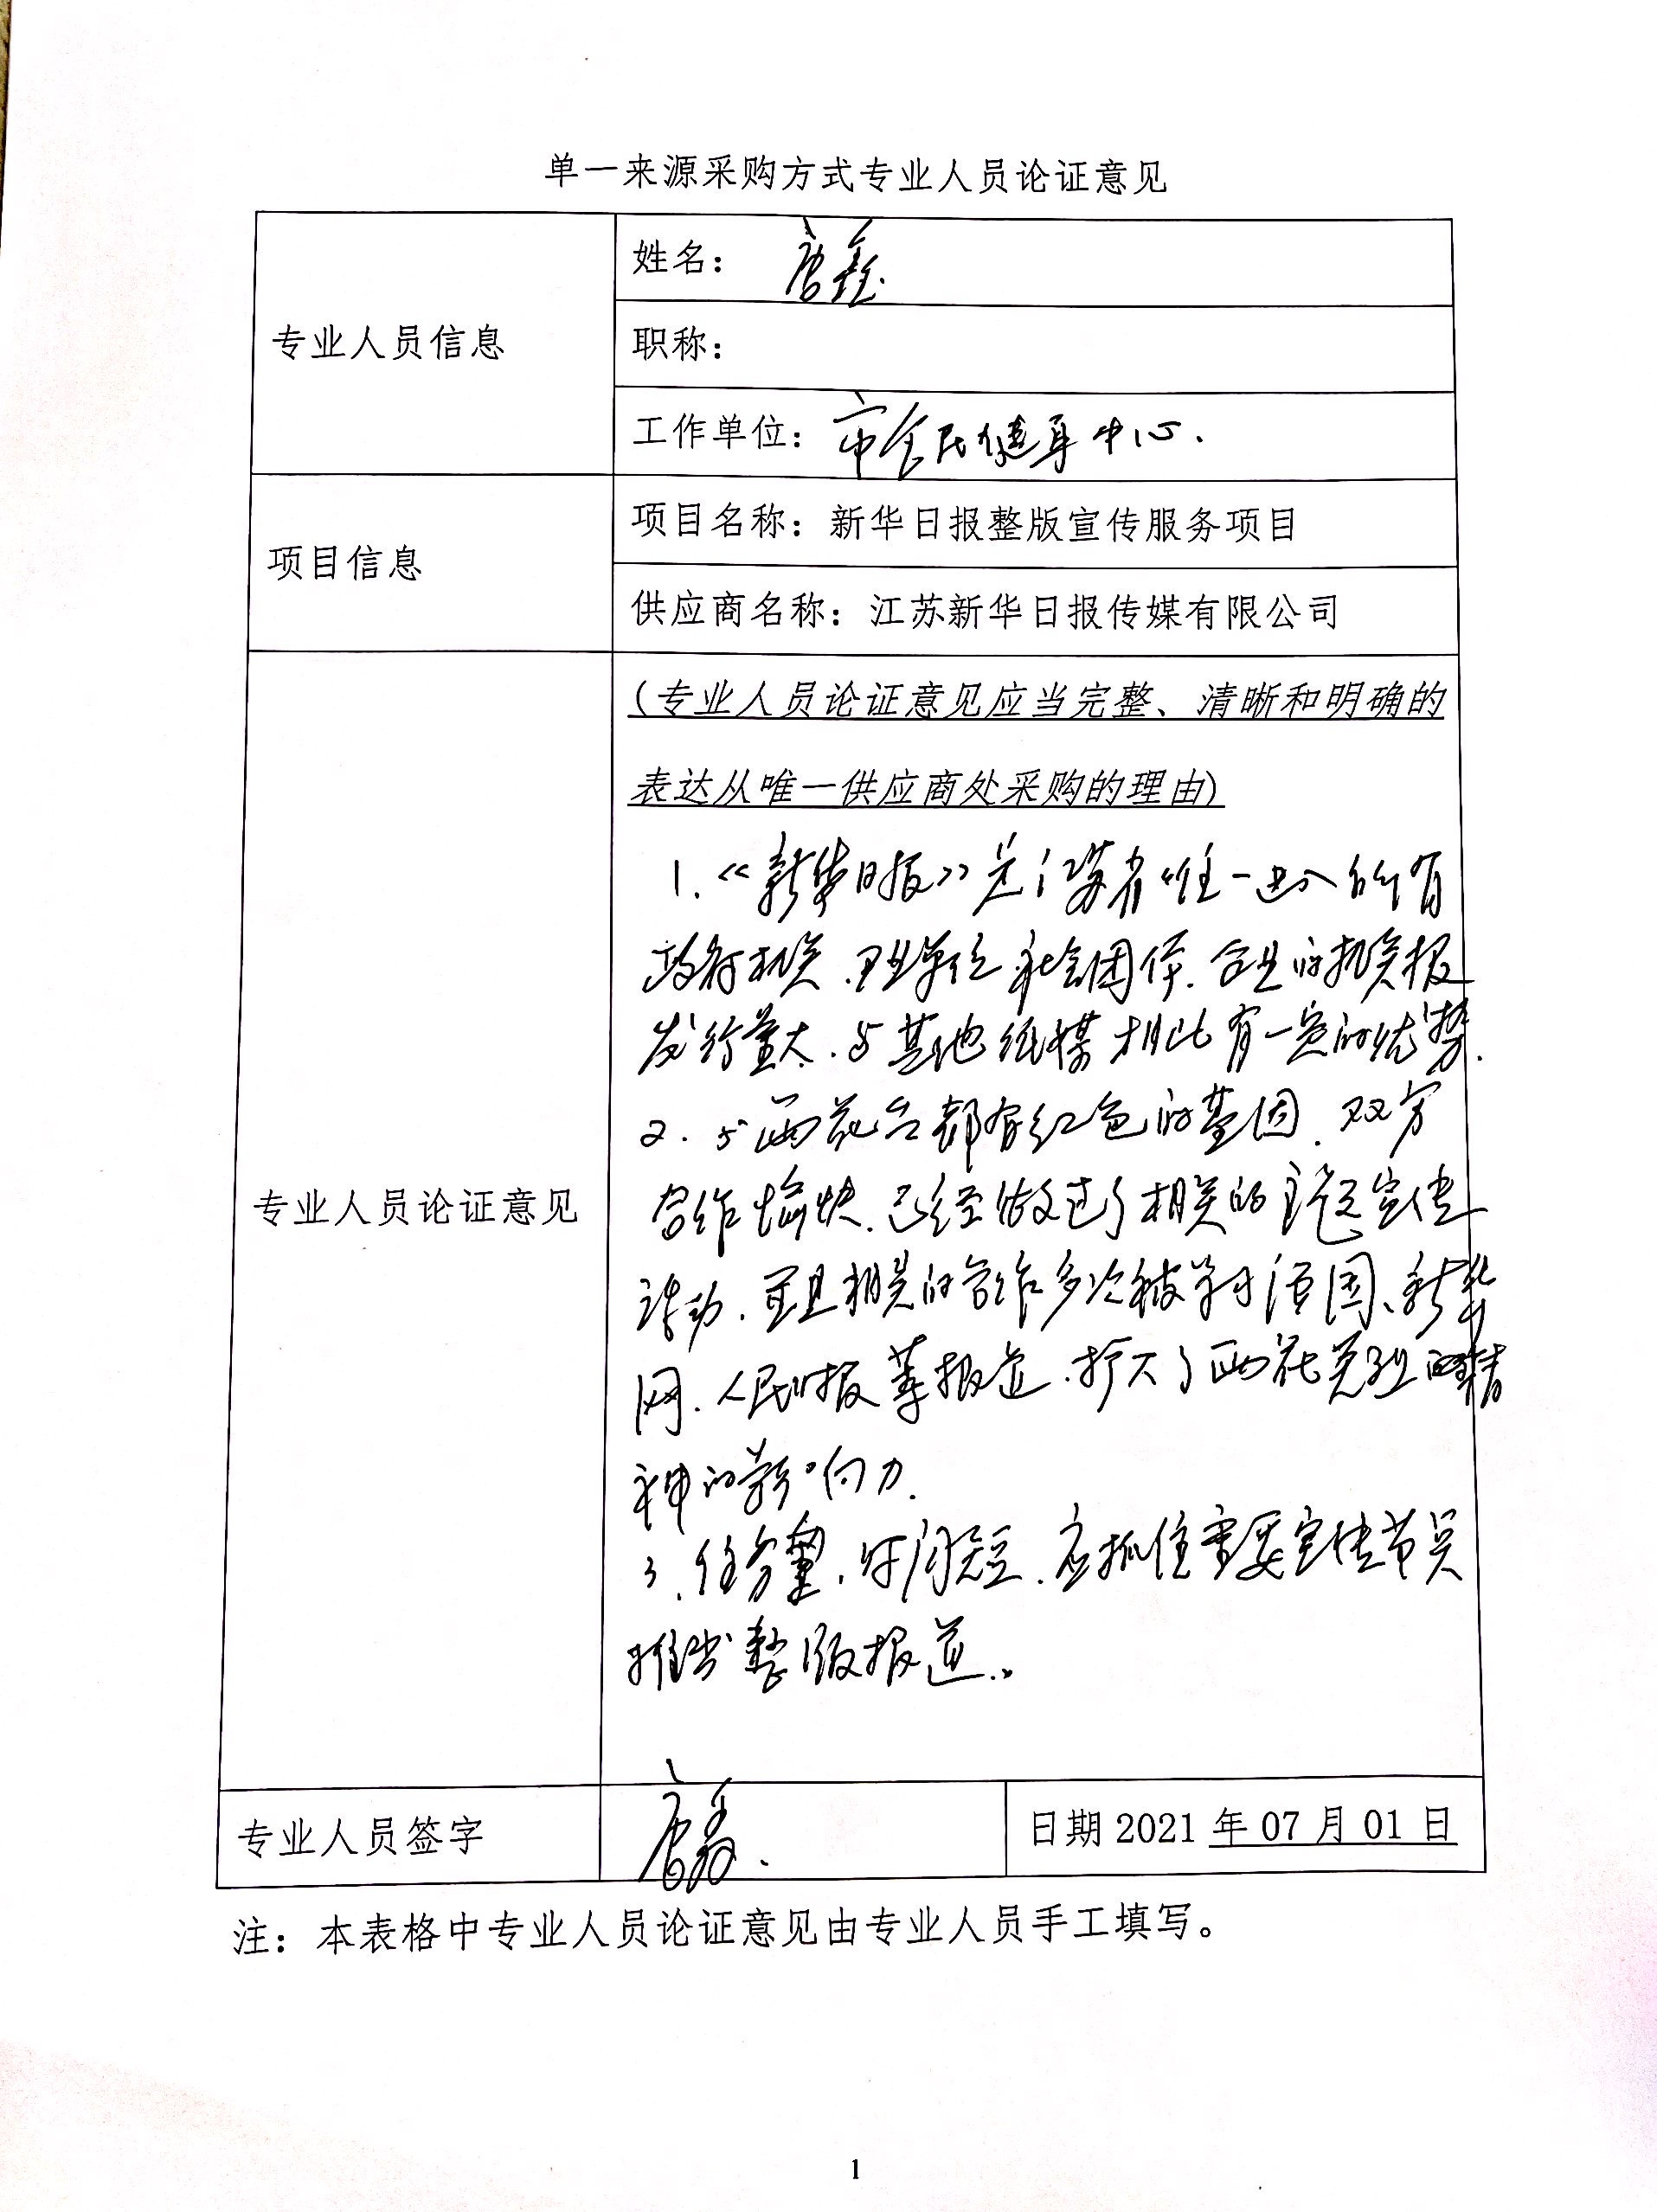 单一来源采购方式专业人员论证意见
专业人员信息
姓名：唐鑫
职称：
工作单位：市全民健身中心.
项目信息
项目名称：新华日报整版宣传服务项目
供应商名称：江苏新华日报传媒有限公司
专业人员论证意见
(专业人员论证意见应当完整、清晰和明确的
表达从唯一供应商处采购的理由)
1.《新华日报》是江苏省唯一进入所有
政府机关.事业单位.社会团体.企业的机关报
发行量大.与其他纸媒相比有一定的优势.
2.与雨花台都有红色的基因.双方
合作愉快.已经做过了相关的主题宣传
活动.并且相关的合作多次被学习强国、新华
网.人民日报等报道.扩大了雨花英烈的精
神的影响力.
3.任务重.时间短.应抓住重要宣传节点
推出整版报道.
专业人员签字
唐鑫.
日期 2021 年 07 月 01 日
注：本表格中专业人员论证意见由专业人员手工填写。
1